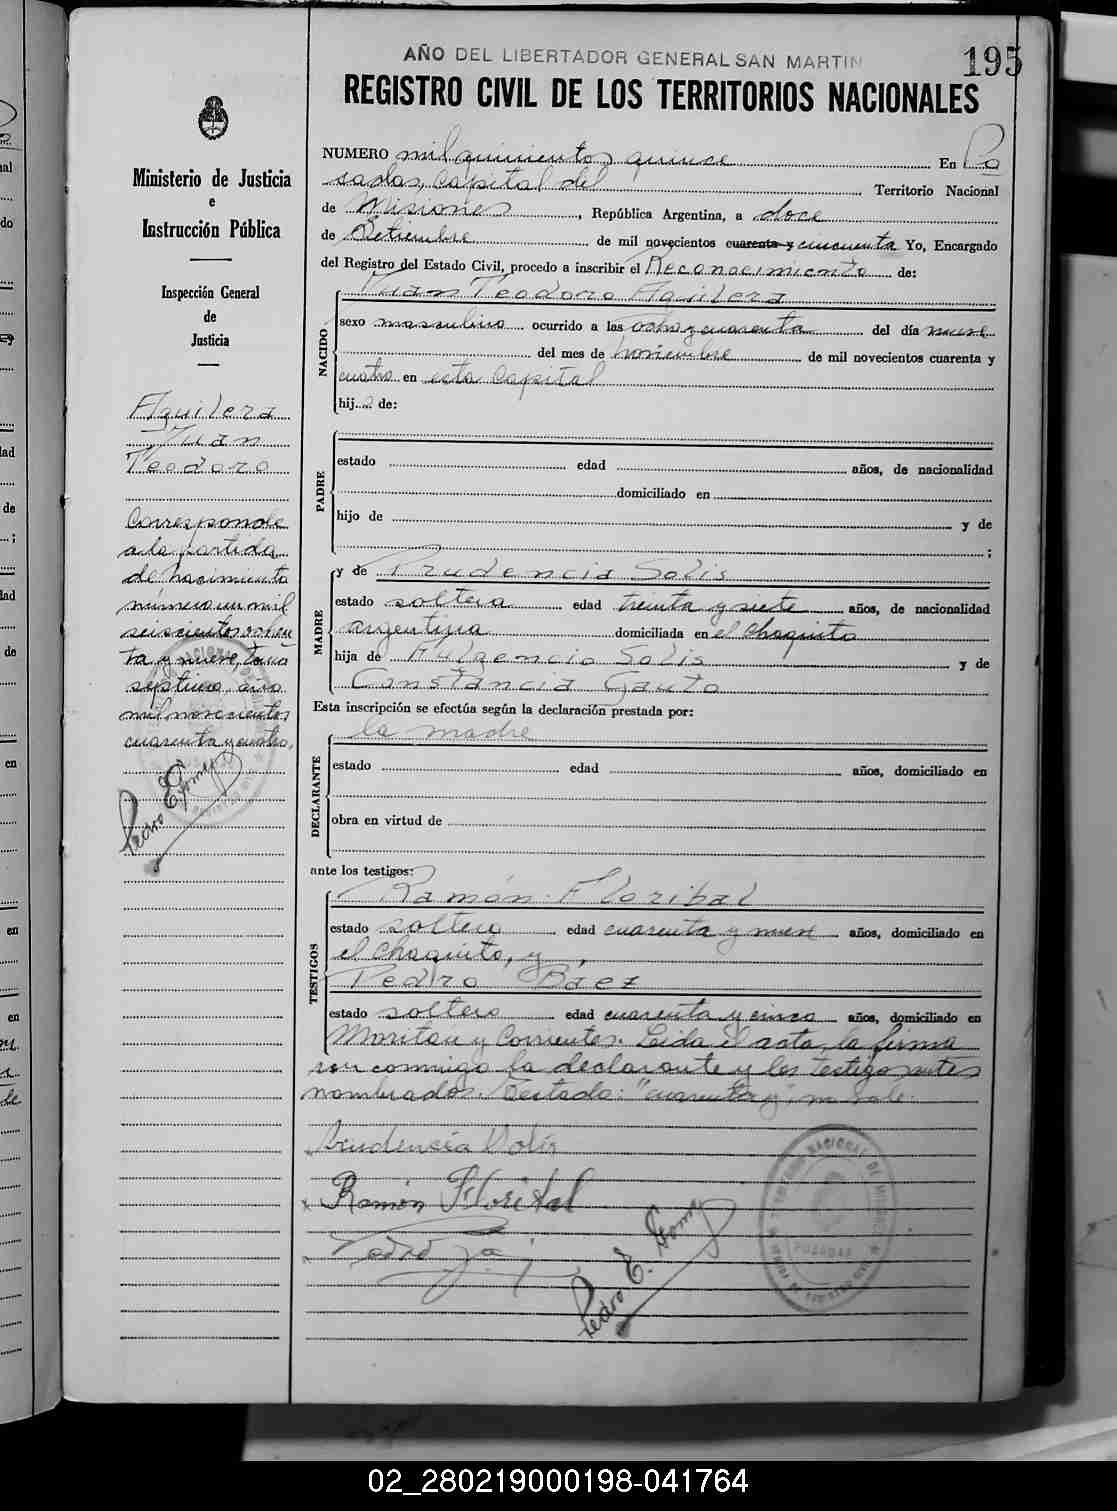 AÑO DEL LIBERTADOR GENERAL SAN MARTIN
195
REGISTRO CIVIL DE LOS TERRITORIOS NACIONALES
Ministerio de Justicia
e
Instrucción Pública
Inspección General
de
Justicia
Aguilera
Juan
Teodoro
Corresponde
a la partida
de nacimiento
número un mil
seiscientos ochen
ta y nueve, tomo
septimo, año
mil novecientos
cuarenta y cuatro.
Pedro E. Gomez
NUMERO mil quinientos quince En Po
sadas, Capital del Territorio Nacional
de Misiones, República Argentina, a doce
de Setiembre de mil novecientos cuarenta y cincuenta Yo, Encargado
del Registro del Estado Civil, procedo a inscribir el Reconocimiento de:
NACIDO
Juan Teodoro Aguilera
sexo masculino ocurrido a las ocho y cuarenta del día nueve
del mes de noviembre de mil novecientos cuarenta y
cuatro en esta Capital
hijo de:
PADRE
estado edad años, de nacionalidad
domiciliado en
hijo de y de
;
MADRE
y de Prudencia Solis
estado soltera edad treinta y siete años, de nacionalidad
argentina domiciliada en el Chaquito
hija de Fulgencio Solis y de
Constancia Gauto
Esta inscripción se efectúa según la declaración prestada por:
DECLARANTE
la madre
estado edad años, domiciliado en
obra en virtud de
ante los testigos:
TESTIGOS
Ramón Floribal
estado soltero edad cuarenta y nueve años, domiciliado en
el Chaquito, y
Pedro Báez
estado soltero edad cuarenta y cinco años, domiciliado en
y Corrientes. Leida el acta, la firma
con conmigo la declarante y los testigos antes
nombrados. Testado: "cuarenta y", no vale.
Prudencia Solis
Ramón Floribal
Pedro
Pedro E. Gomez
POSADAS
02_280219000198-041764